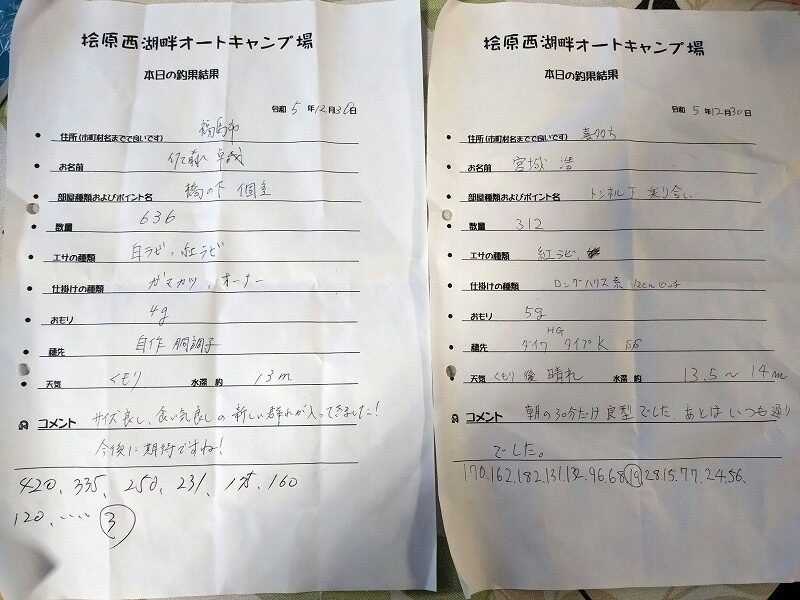 桧原西湖畔オートキャンプ場
本日の釣果結果
令和 5 年 12 月 30 日
住所(市町村名までで良いです) 福島市
お名前 佐藤 卓哉
部屋種類およびポイント名 橋の下 個室
数量 636
エサの種類 白ラビ、紅ラビ
仕掛けの種類 ガマカツ、オーナー
おもり 4g
穂先 自作 胴調子
天気 くもり 水深 約 13m
コメント サイズ良し、食い気良しの新しい群れが入ってきました!
今後に期待ですね!
420、335、250、231、 160
120、‥‥ ③
桧原西湖畔オートキャンプ場
本日の釣果結果
令和 5 年 12 月 30 日
住所(市町村名までで良いです) 喜多方
お名前 宮城 浩
部屋種類およびポイント名 トンネル下 乗り合い
数量 312
エサの種類 紅ラビ、
仕掛けの種類 ロングハリス系 12cmピッチ
おもり 5g
穂先 ダイワ HG タイプK SS
天気 くもり後 晴れ 水深 約 13.5〜14m
コメント 朝の30分だけ良型でした。あとはいつも通り
でした。
170.162.182.131.132.96.68.⑲.28.15.77.24.56.